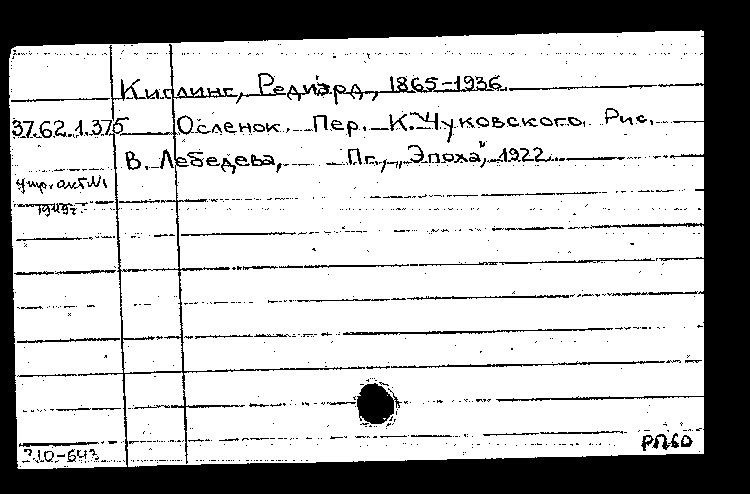 Киплинг, Редиард, 1865-1936.
37.62.1.375 Осленок. Пер. К. Чуковского. Рис.
В. Лебедева, Пг., „Эпоха", 1922.
утр. акт №1
1949г.
310-643
РПбО